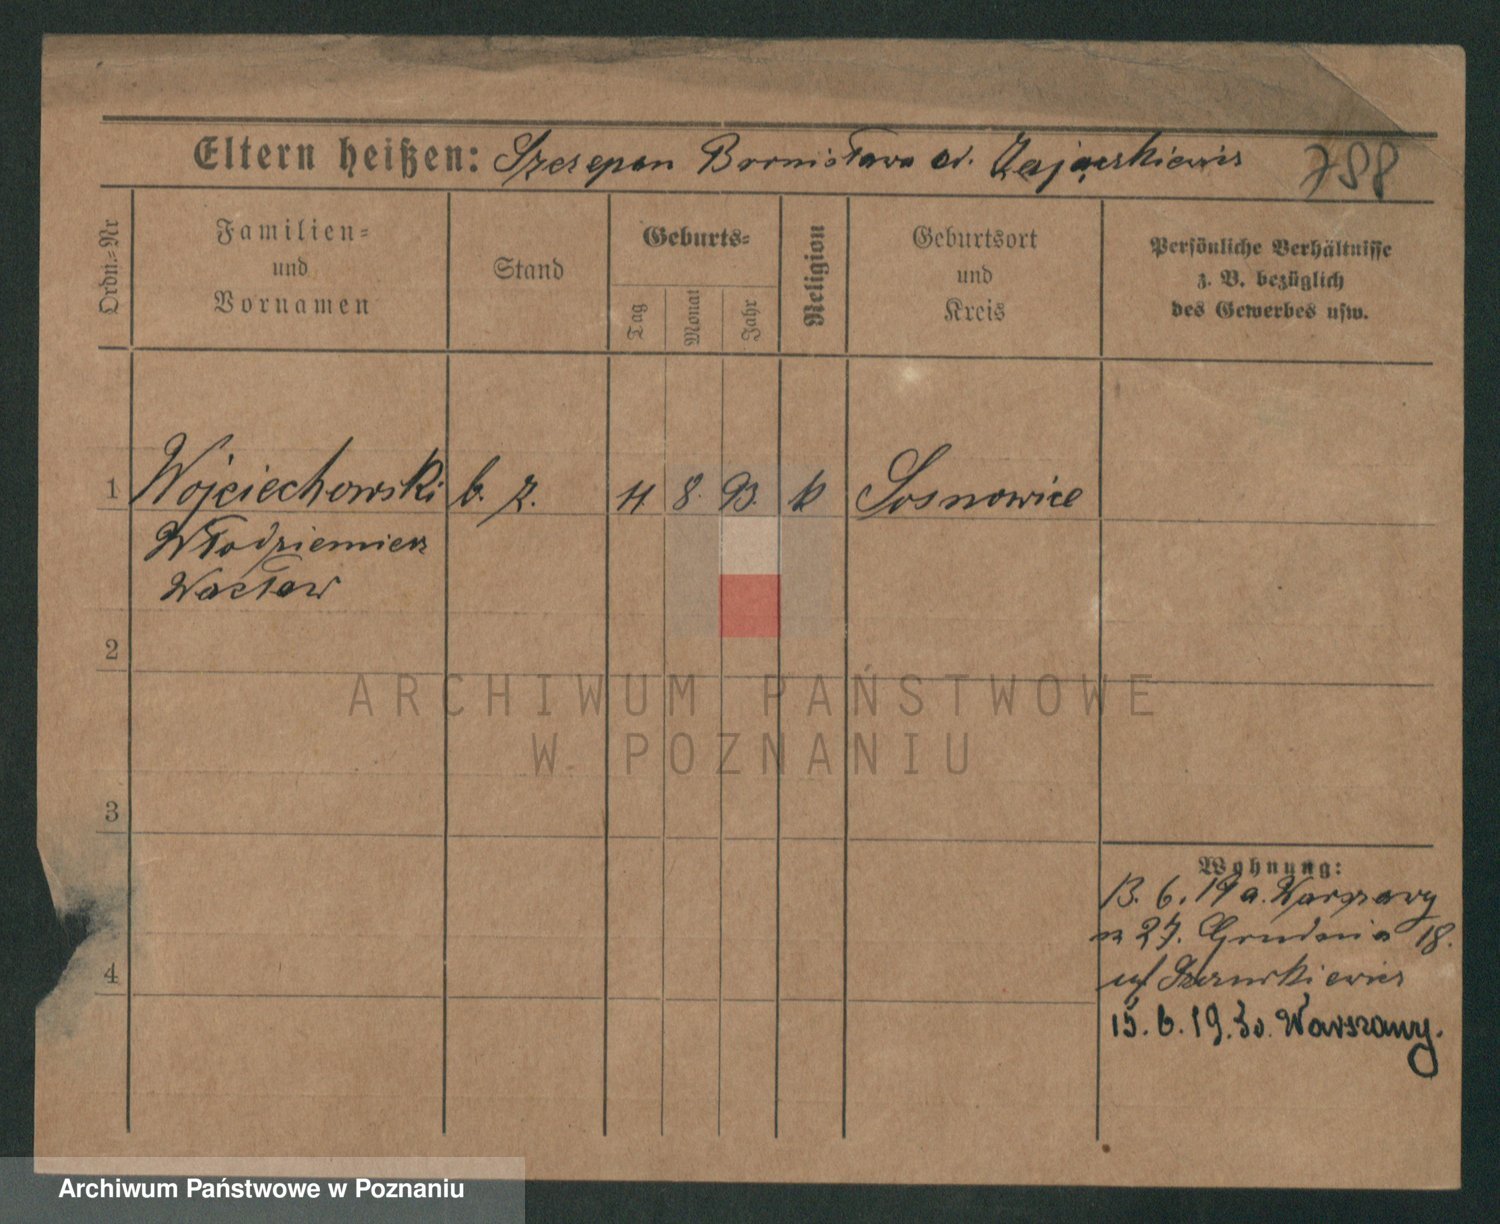 Eltern heißen: Szczepan Bronisława od. Zajączkiewicz 788
Ordn.=Nr
Familien=
und
Vornamen
Stand
Geburts=
Tag
Monat
Jahr
Religion
Geburtsort
und
Kreis
Persönliche Verhältnisse
z. B. bezüglich
des Gewerbes usw.
1 Wojciechowski b. z. 11 8. 93. k Sosnowice
Włodziemierz
Wacław
2
ARCHIWUM PAŃSTWOWE
W POZNANIU
3
Wohnung:
13. 6. 19 a. Warszawy
27. Grudnia 18.
4
15. 6. 19. do Warszawy.
Archiwum Państwowe w Poznaniu